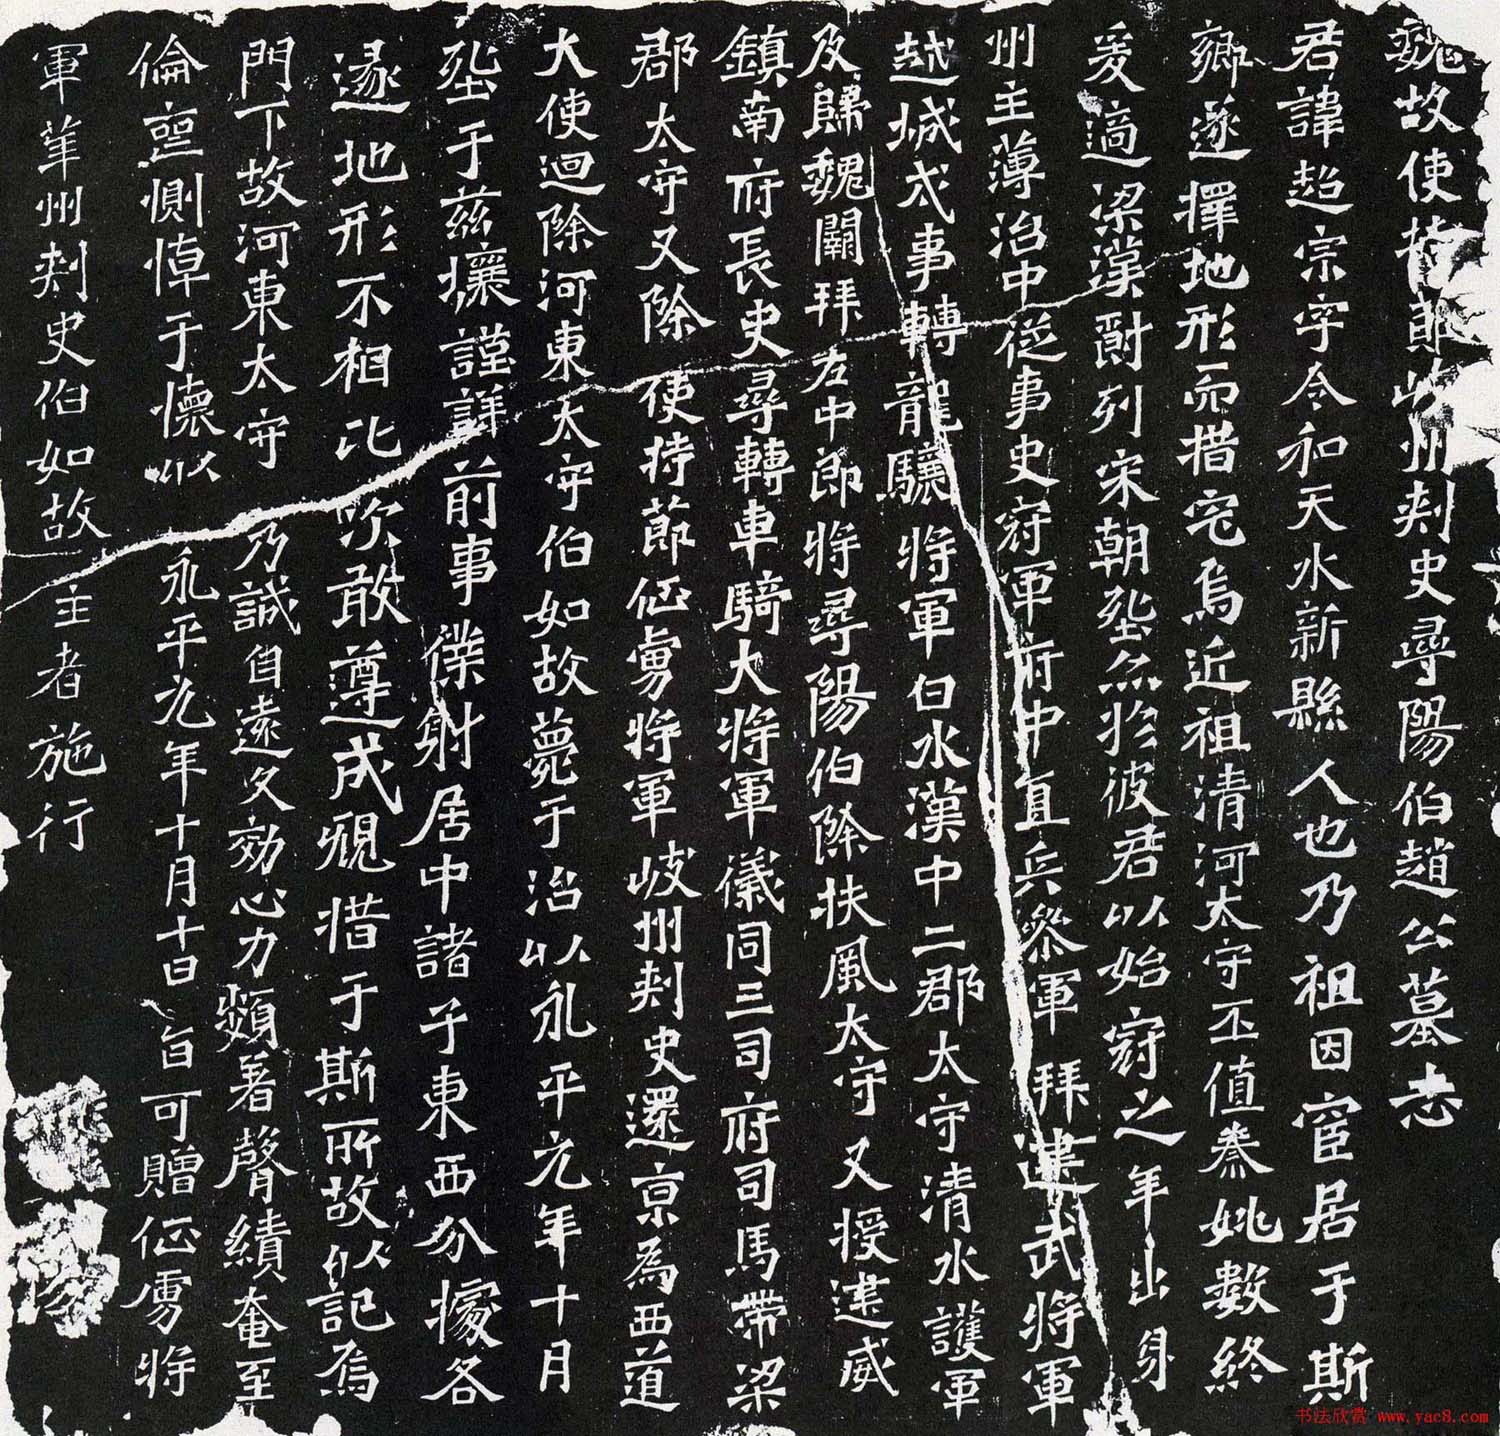 魏故使持節岐州刾史尋陽伯趙公墓志
君諱超宗字令和天水新縣人也乃祖因宦居于斯
鄉遂擇地形而措宅焉近祖清河太守丕值秦姚數終
爰適梁漢爵列宋朝埊亦於彼君以始冠之年出身
州主薄治中從事史冠軍府中直兵參軍拜建武將軍
越城戍事轉龍驤將軍白水漢中二郡太守清水護軍
及歸魏闕拜左中郎將尋陽伯除扶風太守又授建威
鎮南府長史尋轉車騎大將軍儀同三司府司馬帶梁
郡太守又除使持節征虜將軍岐州刾史還京為西道
大使迴除河東太守伯如故薨于治以永平元年十月
埊于茲壤謹詳前事僕射居中諸子東西分據各
遂地形不相比次敢遵成規措于斯所故以記焉
門下故河東太守乃誠自遠久効心力頻著聲績奄至
倫喪惻悼于懷以永平元年十月十日旨可贈征虜將
軍華州刾史伯如故主者施行
书法欣赏 www.yac8.com